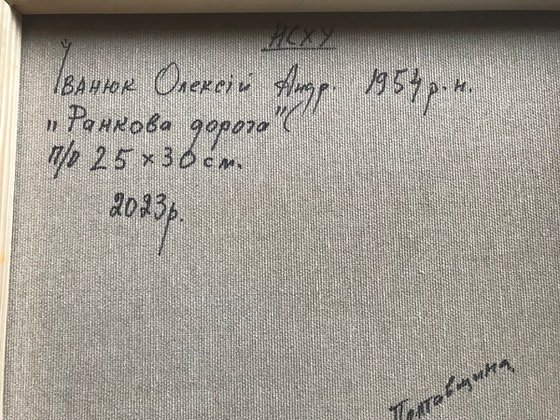 НСХУ
Іванюк Олексій Андр. 1954 р.н.
„Ранкова дорога"(
п/о 25×30 см.
2023р.
Полтавщина,